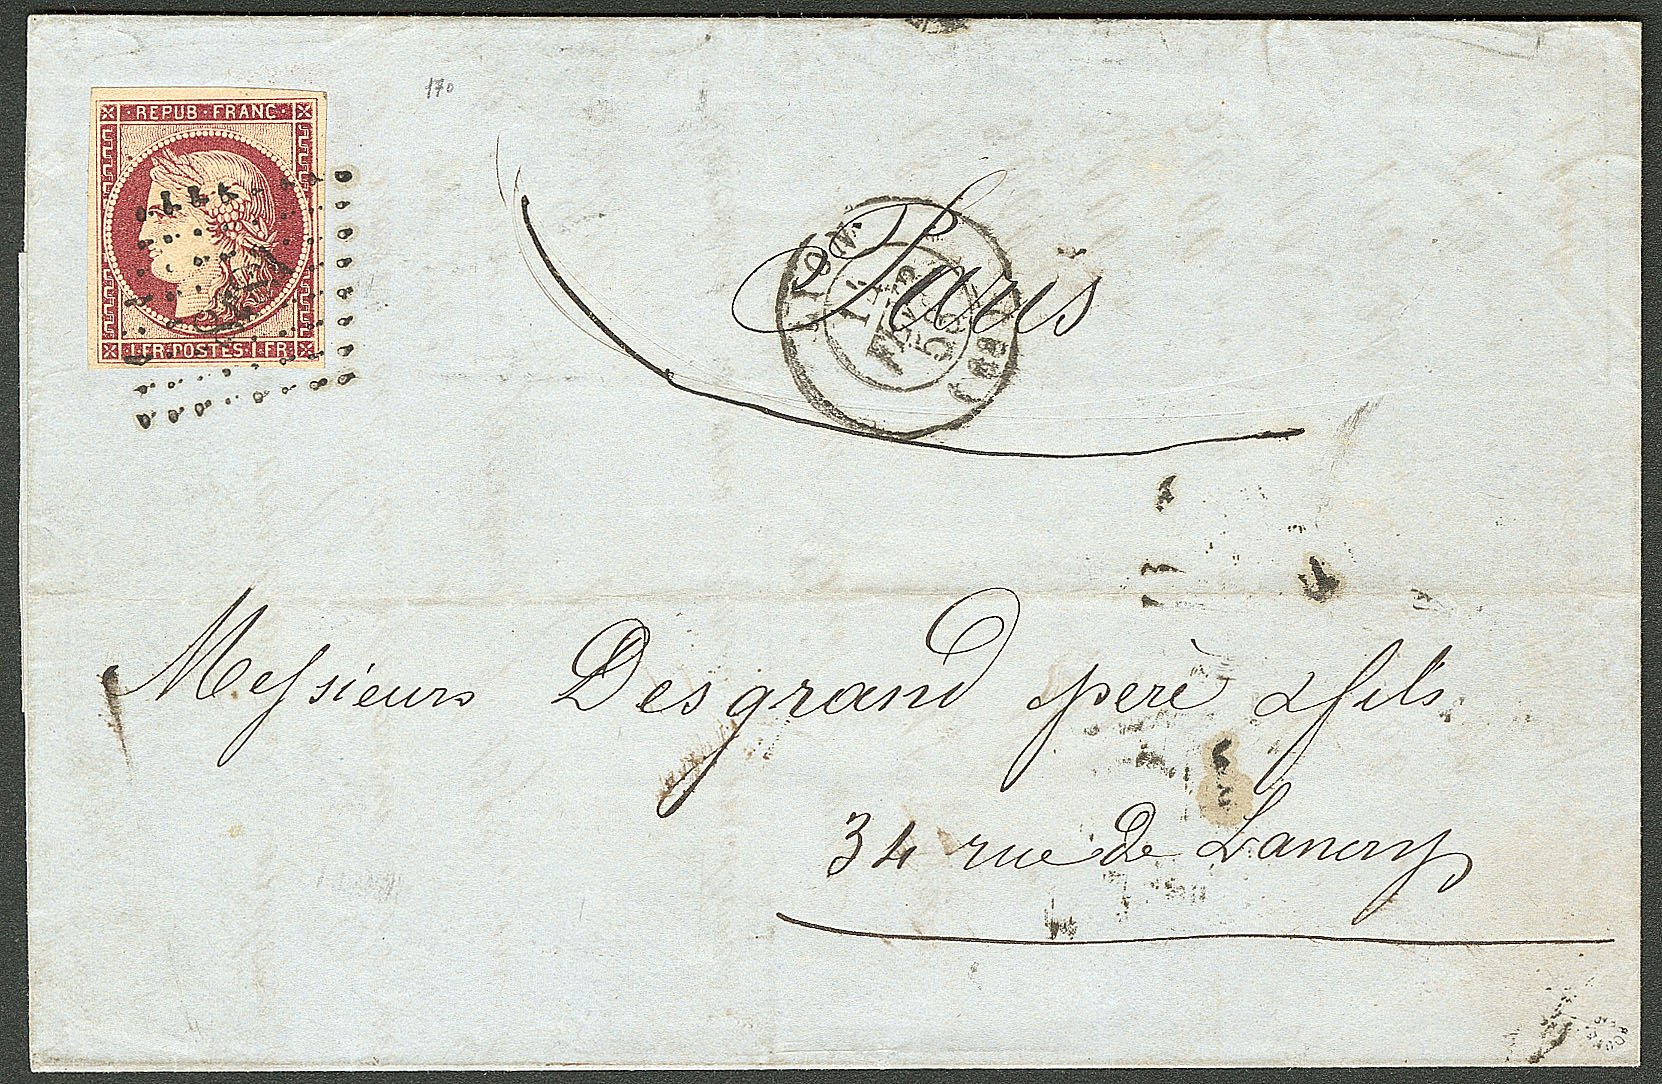 170
REPUB·FRANC·
1 FR·POSTES·1 FR
LYON
14
FEVR
53
(68)
Paris
Messieurs Desgrand perè & fils
34 rue de Lancry